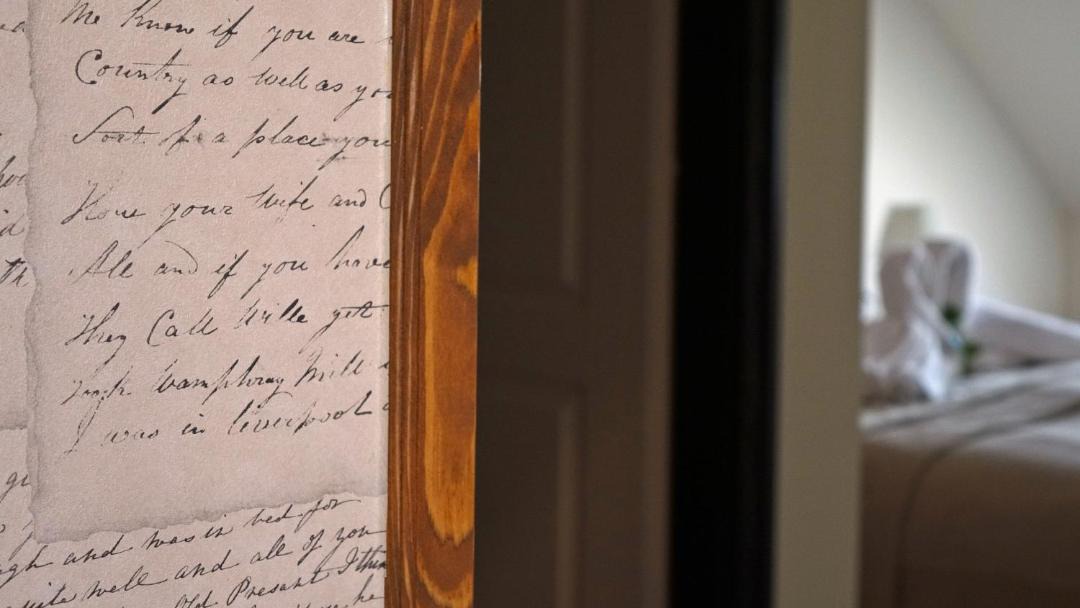 me Know if you are
Country as well as you
Sort of a place you
How your Wife and
All and if you have
they Call Wille yet
Wamphray Mill
I was in liverpool
gh and was in bed for
quite well and all of you
Old Presant I thin
he